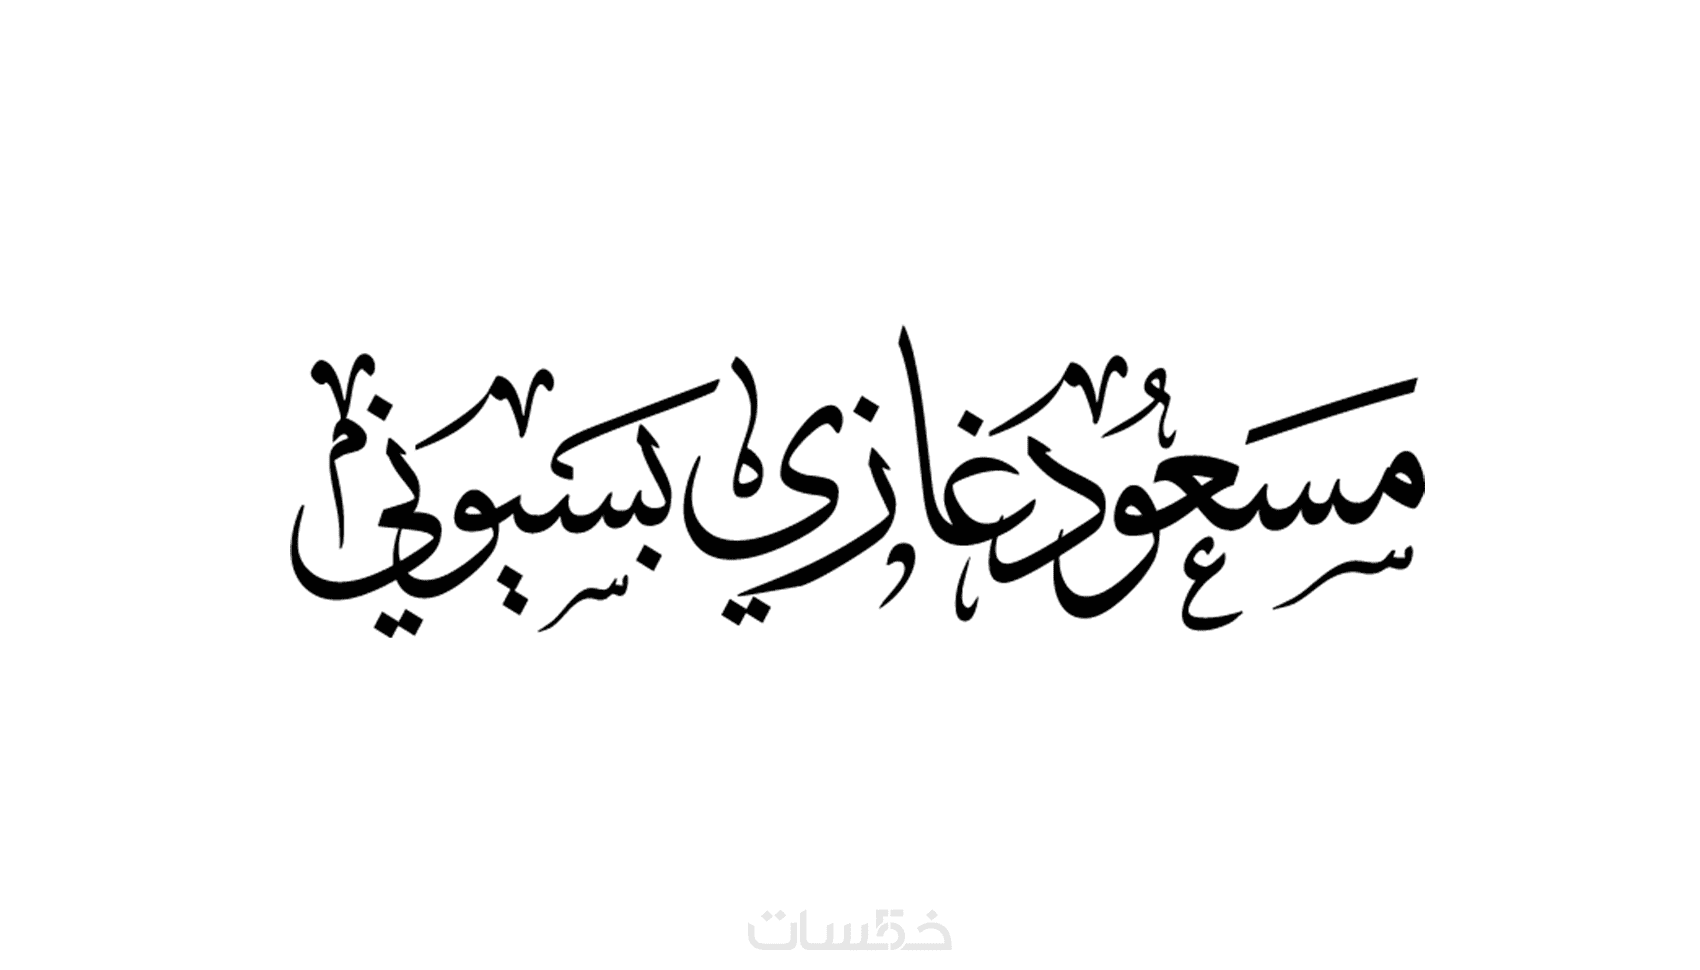 مسعود غازي بسيوني
خمسات